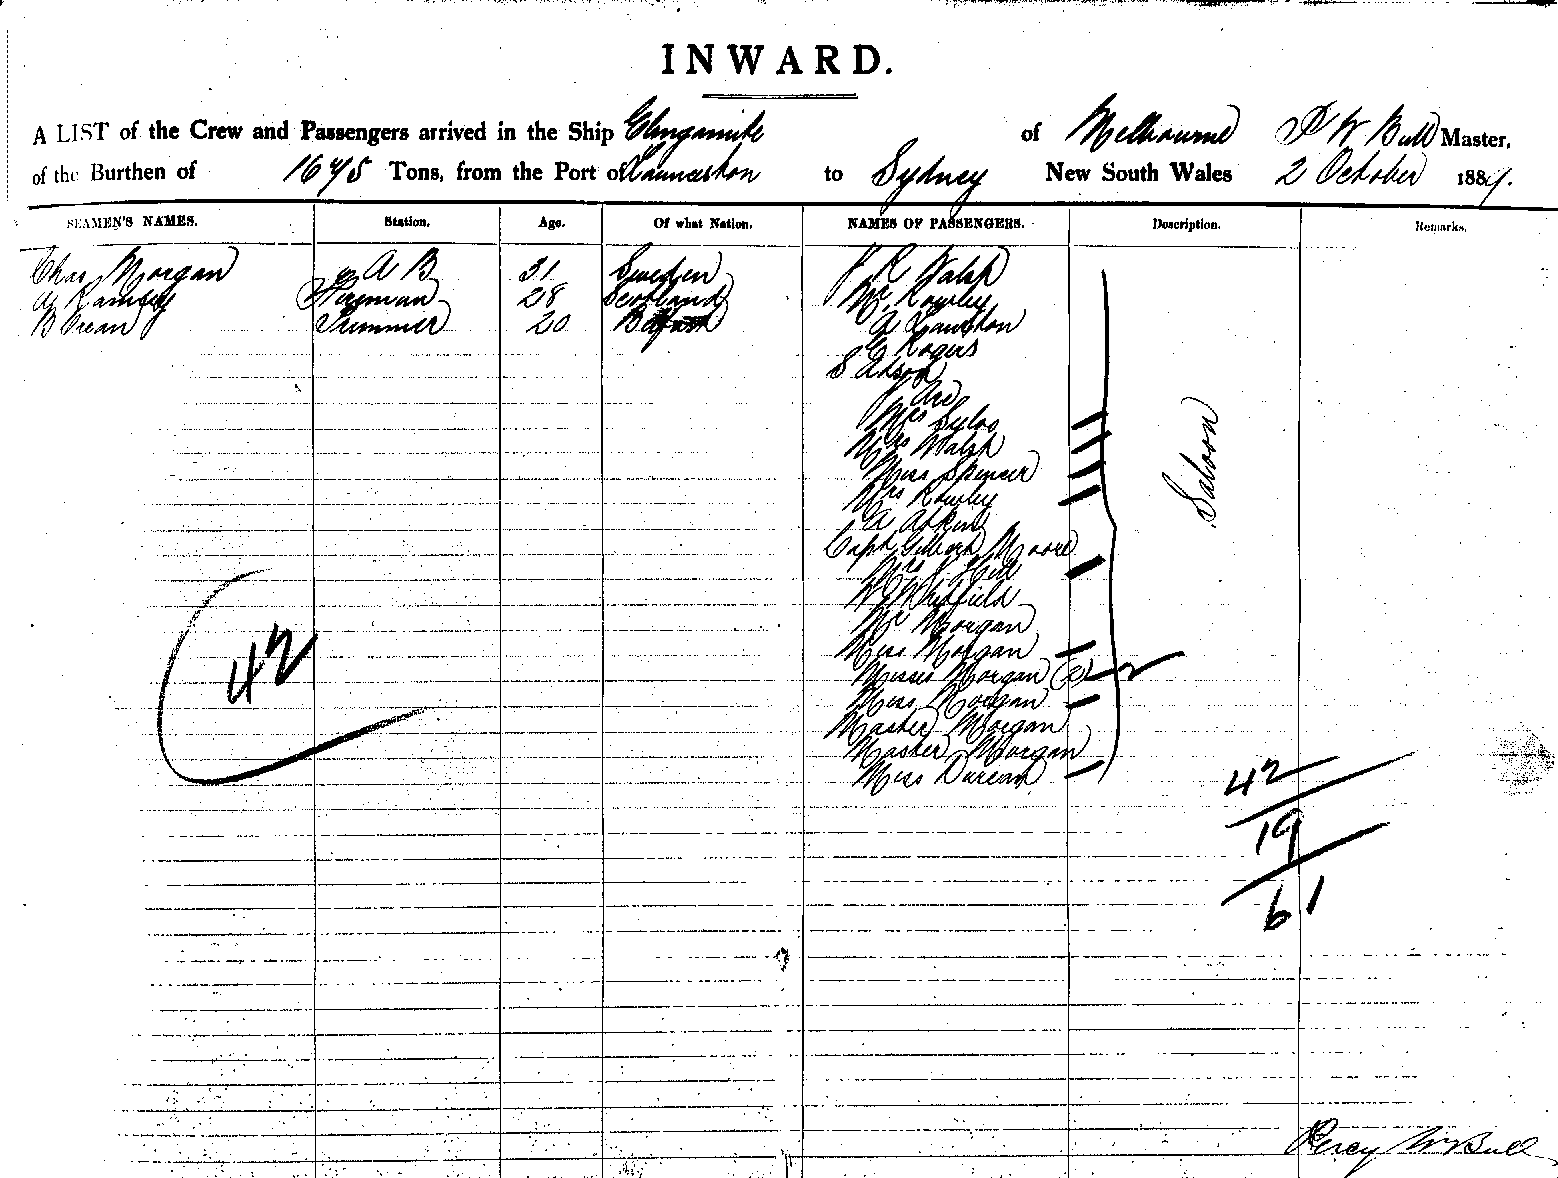 INWARD.
A LIST of the Crew and Passengers arrived in the Ship Elingamite of Melbourne P W Bull Master,
of the Burthen of 1675 Tons, from the Port of Launceston to Sydney New South Wales 2 October 1889.
SEAMEN'S NAMES. Station. Age. Of what Nation. NAMES OF PASSENGERS. Description. Remarks.
Chas Morgan A B 31 Sweden J R Walsh
Ramsey Fireman 28 Scotland Mr Rowley
B Trimmer 20 Belfast A
Rogers
S
J
Mrs
Mrs Walsh
Miss Spencer
Mrs Rowley
A
Capt Moore
Saloon
Mrs J
W
Mr Morgan
Miss Morgan
42
Misses Morgan (2) 2
Miss Morgan
Master Morgan
Master Morgan
Miss
42
19
61
Percy W Bull